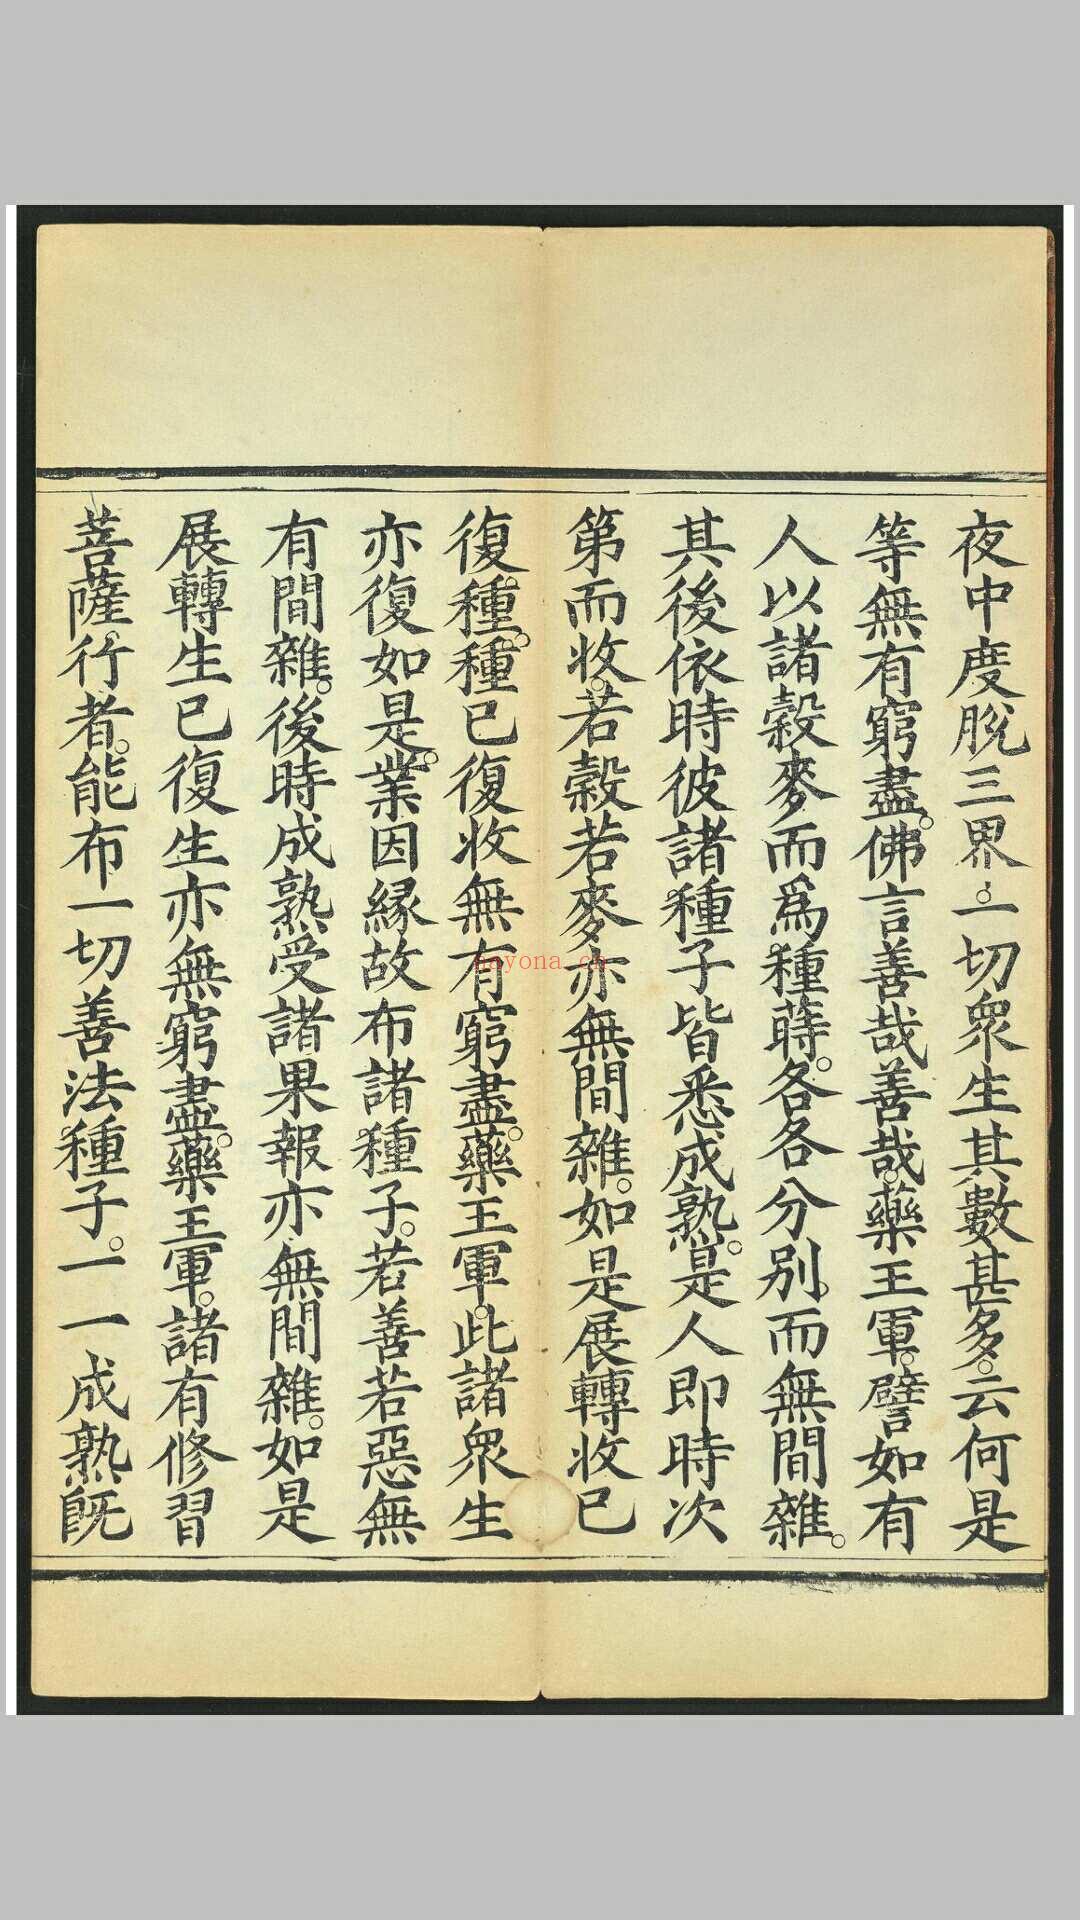 夜中度脫三界。一切衆生其數甚多。云何是
等無有窮盡。佛言善哉善哉。藥王軍。譬如有
人以諸穀麥而爲種蒔。各各分別。而無間雜。
其後依時彼諸種子皆悉成熟。是人即時次
第而收。若穀若麥亦無間雜。如是展轉收已
復種。種已復收無有窮盡。藥王軍。此諸衆生
亦復如是。業因緣故布諸種子。若善若惡無
有間雜。後時成熟受諸果報亦無間雜。如是
展轉生已復生亦無窮盡。藥王軍。諸有修習
菩薩行者。能布一切善法種子。一一成熟旣
nayona.cn